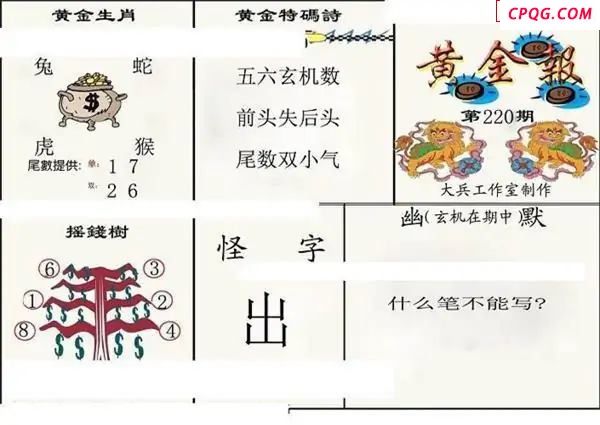 CPQG.COM
黄金生肖
兔 蛇
$
虎 猴
尾數提供: 单: 1 7
双: 2 6
黄金特碼詩
五六玄机数
前头失后头
尾数双小气
黄金報
第220期
大兵工作室制作
摇錢樹
⑥ ③
① ②
⑧ ④
怪 字
出
幽(玄机在期中)默
什么笔不能写?